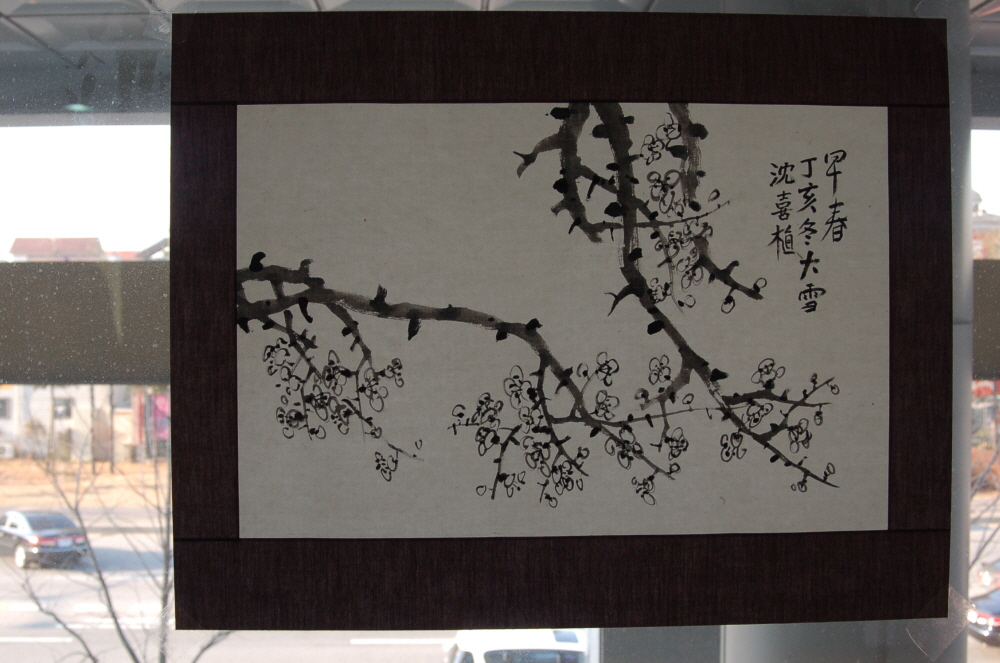 早春
丁亥冬大雪
沈喜植